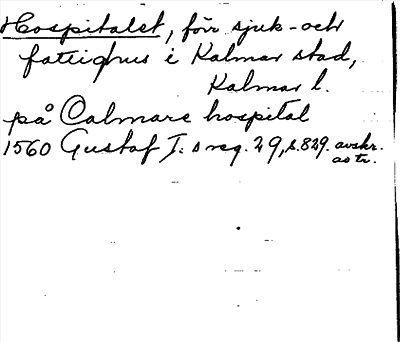 Hospitalet, förr sjuk- och
fattighus i Kalmar stad,
Kalmar l.
på Calmare hospital
1560 Gustaf I:s reg. 29, s. 829. avskr.
aotr.